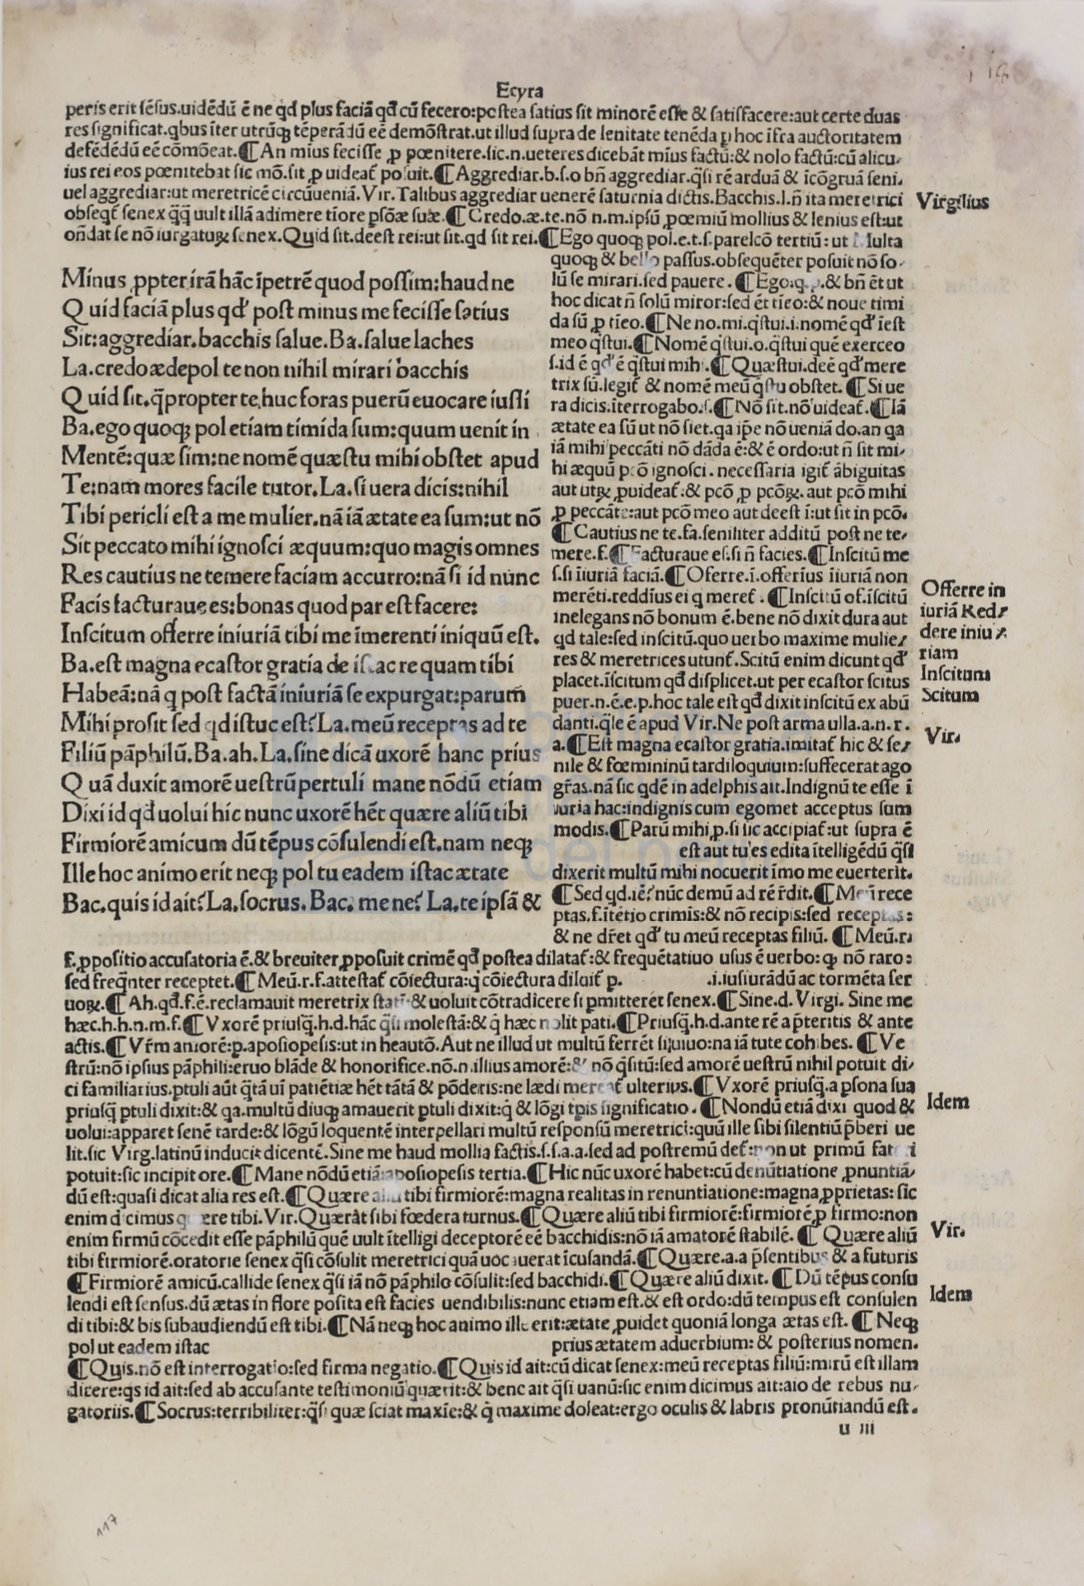 Ecyra
peris erit sẽsus.uidẽdũ ẽ ne qd plus faciã qđ cũ fecero:postea satius sit minorẽ esse & satisfacere:aut certe duas
res significat.qbus ĩter utrũqꝫ tẽperãdũ eẽ demõstrat.ut illud supra de lenitate tenẽda ꝑ hoc ĩfra auctoritatem
defẽdẽdũ eẽ cõmõeat.¶An mius fecisse ꝓ pœnitere.sic.n.ueteres dicebãt mĩus factũ:& nolo factũ:cũ alicu-
ius rei eos pœnitebat sic mõ.sit ꝓuideat posuit.¶Aggrediar.b.s.o bñ aggrediar.q̃si rẽ arduã & ĩcõgruã seni.
uel aggrediar:ut meretricẽ circũueniã.Vir.Talibus aggrediar uenerẽ saturnia dictis.Bacchis.l.ñ ita meretrici
obseqt senex q̃q̃ uult illã adimere tiore ꝑsõæ suæ.¶Credo.æ.te.nõ n.m.ipsũ ꝓœmiũ mollius & lenius est:ut
oñdat se nõ iurgatuꝝ senex.Quid sit.deest rei:ut sit.qd sit rei.¶Ego quoqꝫ pol.e.t.s.parelcõ tertiũ:ut Multa
Virgilius
quoqꝫ & bello passus.obsequẽter posuit nõ so-
lũ se mirari.sed pauere.¶Ego:q.p.& bñ ẽt ut
hoc dicat ñ solũ miror:sed ẽt tĩeo:& noue timi
da sũ ꝓ tĩeo.¶Ne no.mi.q̃stui.i.nomẽ qđ ĩest
meo q̃stui.¶Nomẽ q̃stui.o.q̃stui quẽ exerceo
s.id ẽ qđ ẽ q̃stui mihi.¶Quæstui.deẽ qđ mere
trix sũ.legit & nomẽ meũ q̃stu obstet.¶Si ue
ra dicis.ĩterrogabo.s.¶Nõ sit.nõ uideat.¶Iã
ætate ea sũ ut nõ siet.qa ip̃e nõ ueniã do.an qa
iã mihi peccãti nõ dãda ẽ:& ẽ ordo:ut ñ sit mi-
hi æquũ pcõ ignosci.necessaria igit ãbiguitas
aut utꝝ ꝓuideat:& pcõ ꝓ pcõꝝ.aut pcõ mihi
ꝓ peccãte:aut pcõ meo aut deest ĩ:ut sit in pcõ.
¶Cautius ne te.fa.seniliter additũ post ne te-
mere.f.¶Facturaue es.si ñ facies.¶Inscitũ me
s.si ĩiuriã faciã.¶Oferre.ĩ.offerĩus ĩiuriã non
merẽti.reddĩus ei q meret.¶Inscitũ of.ĩscitũ
inelegans nõ bonum ẽ.bene nõ dixit dura aut
qd tale:sed inscitũ.quo uerbo maxime mulie-
res & meretrices utunt.Scitũ enim dicunt qđ
placet.ĩscitum qđ displicet.ut per ecastor scitus
puer.n.ẽ.e.p.hoc tale est qđ dixit inscitũ ex abũ
danti.q̃le ẽ apud Vir.Ne post arma ulla.a.n.r.
a.¶Est magna ecastor gratia.imitat hic & se-
nile & fœmininũ tardiloquium:suffecerat ago
gr̃as.nã sic qdẽ in adelphis ait.Indignũ te esse ĩ
iuria hac:indignis cum egomet acceptus sum
modis.¶Parũ mihi.p.si sic accipiat:ut supra ẽ
est aut tu es edita ĩtelligẽdũ q̃si
dixerit multũ mihi nocuerit ĩmo me euerterit.
¶Sed qd.iẽ?nũc demũ ad rẽ r̃dit.¶Meũ rece
ptas.f.ĩtẽtio crimis:& nõ recipis:sed receptas:
& ne dr̃et qđ tu meũ receptas filiũ.¶Meũ.r.
Offerre in
iuriã Red-
dere iniu-
riam
Inscitum
Scitum
Vir.
Minus ꝓpter irã hãc ĩpetrẽ quod possim:haud ne
Quid faciã plus qđ post minus me fecisse satius
Sit:aggrediar.bacchis salue.Ba.salue laches
La.credo ædepol te non nihil mirari bacchis
Quid sit.q̃propter te huc foras puerũ euocare iussi
Ba.ego quoqꝫ pol etiam timida sum:quum uenit in
Mentẽ:quæ sim:ne nomẽ quæstu mihi obstet apud
Te:nam mores facile tutor.La.si uera dicis:nihil
Tibi pericli est a me mulier.nã iã ætate ea sum:ut nõ
Sit peccato mihi ignosci æquum:quo magis omnes
Res cautius ne temere faciam accurro:nã si id nunc
Facis facturaue es:bonas quod par est facere:
Inscitum offerre iniuriã tibi me ĩmerenti iniquũ est.
Ba.est magna ecastor gratia de istac re quam tibi
Habeã:nã q post factã iniuriã se expurgat:parum
Mihi prosit sed qd istuc est?La.meũ receptas ad te
Filiũ pãphilũ.Ba.ah.La.sine dicã uxorẽ hanc prius
Quã duxit amorẽ uestrũ pertuli mane nõdũ etiam
Dixi id qđ uolui hic nunc uxorẽ hẽt quære aliũ tibi
Firmiorẽ amicum dũ tẽpus cõsulendi est.nam neqꝫ
Ille hoc animo erit neqꝫ pol tu eadem istac ætate
Bac.quis id ait?La.socrus.Bac.me ne?La.te ipsã &
f.ꝓpositio accusatoria ẽ.& breuiter ꝓposuit crimẽ qđ postea dilatat:& frequẽtatiuo usus ẽ uerbo:qꝫ nõ raro:
sed freq̃nter receptet.¶Meũ.r.f.attestat cõiectura:q̃ cõiectura diluit p. .i.iusiurãdũ ac tormẽta ser
uoꝝ.¶Ah.qđ.f.ẽ.reclamauit meretrix statĩ & uoluit cõtradicere si ꝑmitteret senex.¶Sine.d.Virgi.Sine me
hæc.h.h.n.m.f.¶Vxorẽ priusq̃.h.d.hãc q̃si molestã:& q̃ hæc nolit pati.¶Priusq̃.h.d.ante rẽ ap̃teritis & ante
actis.¶Vr̃m amorẽ:p.aposiopesis:ut in heautõ.Aut ne illud ut multũ ferrẽt si uiuo:na iã tute cohibes.¶Ve
strũ:nõ ipsius pãphili:eruo blãde & honorifice.nõ.n.illius amorẽ:& nõ q̃sitũ:sed amorẽ uestrũ nihil potuit di-
ci familiarius.ptuli aũt q̃tã ui patiẽtiæ hẽt tãtã & põderis:ne lædi mereat ulterius.¶Vxorẽ priusq̃.a ꝑsona sua
priusq̃ ptuli dixit:& qa.multũ diuqꝫ amauerit ptuli dixit:q̃ & lõgi tꝑis significatio.¶Nondũ etiã dixi quod &
uolui:apparet senẽ tarde:& lõgũ loquentẽ interpellari multũ responsũ meretrici:quũ ille sibi silentiũ p̃beri ue
lit.sic Virg.latinũ inducit dicentẽ.Sine me haud mollia factis.s.f.a.a.sed ad postremũ det:non ut primũ fateri
potuit:sic incipit ore.¶Mane nõdũ etiã:aposiopesis tertia.¶Hic nũc uxorẽ habet:cũ denũtiatione ꝓnuntiã-
dũ est:quasi dicat alia res est.¶Quære aliũ tibi firmiorẽ:magna realitas in renuntiatione:magna ꝓprietas:sic
enim dicimus quære tibi.Vir.Quærãt sibi fœdera turnus.¶Quære aliũ tibi firmiorẽ:firmiorẽ ꝓ firmo:non
enim firmũ cõcedit esse pãphilũ quẽ uult ĩtelligi deceptorẽ eẽ bacchidis:nõ iã amatorẽ stabilẽ.¶Quære aliũ
tibi firmiorẽ.oratorie senex q̃si cõsulit meretrici quã uocauerat ĩcusandã.¶Quære.a.a p̃sentibus & a futuris
¶Firmiorẽ amicũ.callide senex q̃si iã nõ pãphilo cõsulit:sed bacchidi.¶Quære aliũ dixit.¶Dũ tẽpus consu
lendi est sensus.dũ ætas in flore posita est facies uendibilis:nunc etiam est.& est ordo:dũ tempus est consulen
di tibi:& bis subaudiendũ est tibi.¶Nã neqꝫ hoc animo ille erit:ætate ꝓuidet quoniã longa ætas est.¶Neqꝫ
pol ut eadem istac prius ætatem aduerbium:& posterius nomen.
¶Quis.nõ est interrogatio:sed firma negatio.¶Quis id ait:cũ dicat senex:meũ receptas filiũ:mirũ est illam
dicere:qs id ait:sed ab accusante testimoniũ quærit:& bene ait q̃si uanũ:sic enim dicimus ait:aio de rebus nu-
gatoriis.¶Socrus:terribiliter:q̃si quæ sciat maxĩe:& q̃ maxime doleat:ergo oculis & labris pronũtiandũ est.
Idem
Vir.
Idem
u iii
117